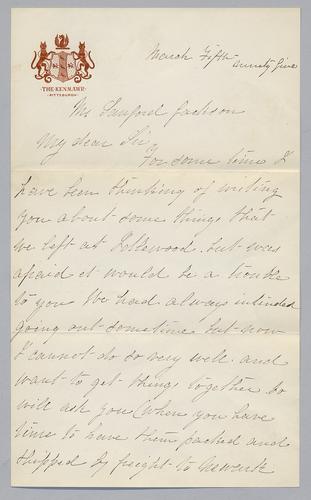 THE KENMAWR
PITTSBURGH
March Fifth
Ninety five
Mr Sanford Jackson
My dear Sir
For some time I
have been thinking of writing
you about some things that
we left at Idlewood. but was
afraid it would be a trouble
to you We had always intended
going out sometime but now
I cannot do so very well. and
want to get things together. so
will ask you (when you have
time to have them packed and
shipped by freight to Newark